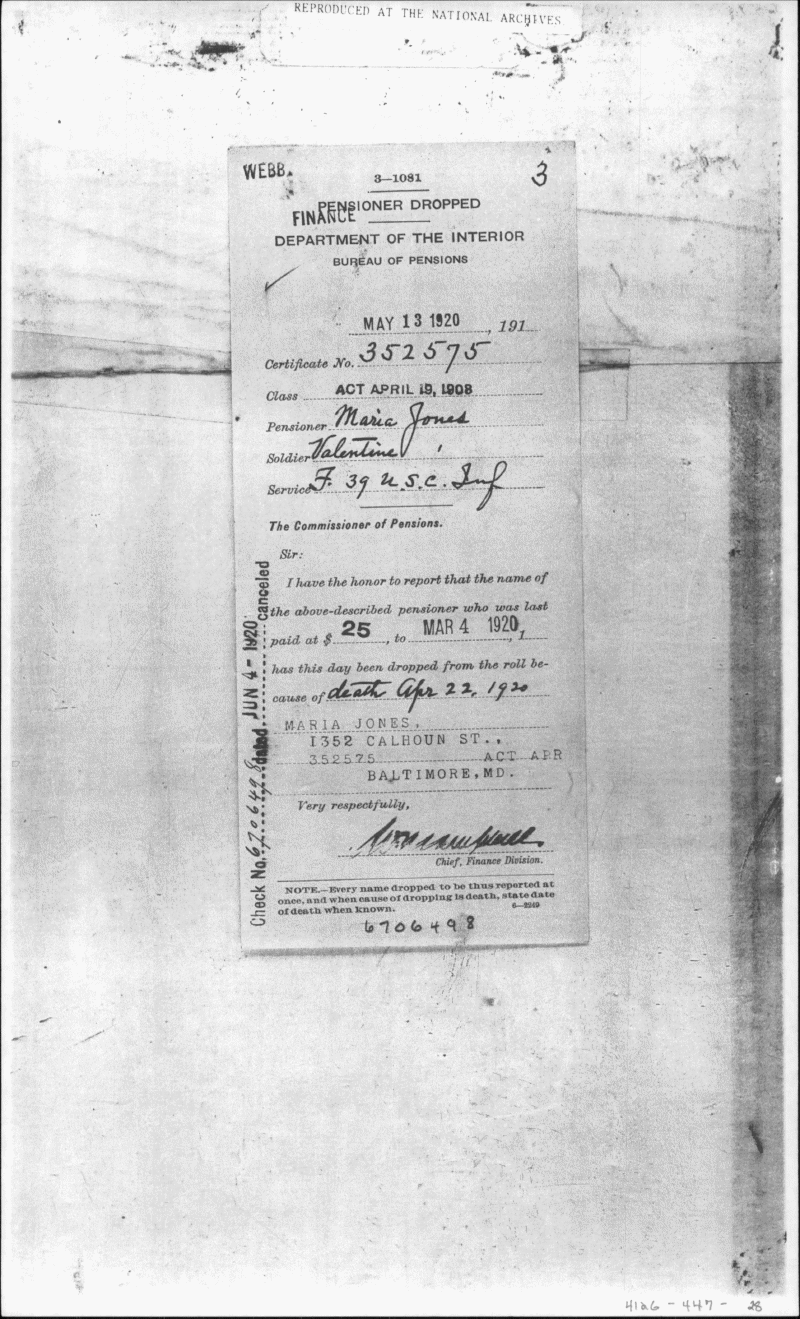 REPRODUCED AT THE NATIONAL ARCHIVES
WEBB.
3
3—1081
PENSIONER DROPPED
FINANCE
DEPARTMENT OF THE INTERIOR
BUREAU OF PENSIONS
MAY 13 1920, 191
Certificate No. 352575
Class ACT APRIL 19, 1908
Pensioner Maria Jones
Soldier Valentine "
Service F. 39 U.S.C. Inf
The Commissioner of Pensions.
Sir:
I have the honor to report that the name of
the above-described pensioner who was last
paid at $ 25, to MAR 4 1920, 1
has this day been dropped from the roll be-
cause of death Apr 22, 1920
MARIA JONES,
1352 CALHOUN ST.,
352575 ACT APR
BALTIMORE, MD.
Very respectfully,
Chief, Finance Division.
NOTE.—Every name dropped to be thus reported at
once, and when cause of dropping is death, state date
of death when known.
6—2249
6706498
Check No. 6706498 dated JUN 4 - 1920 canceled
4126 - 447 - 28